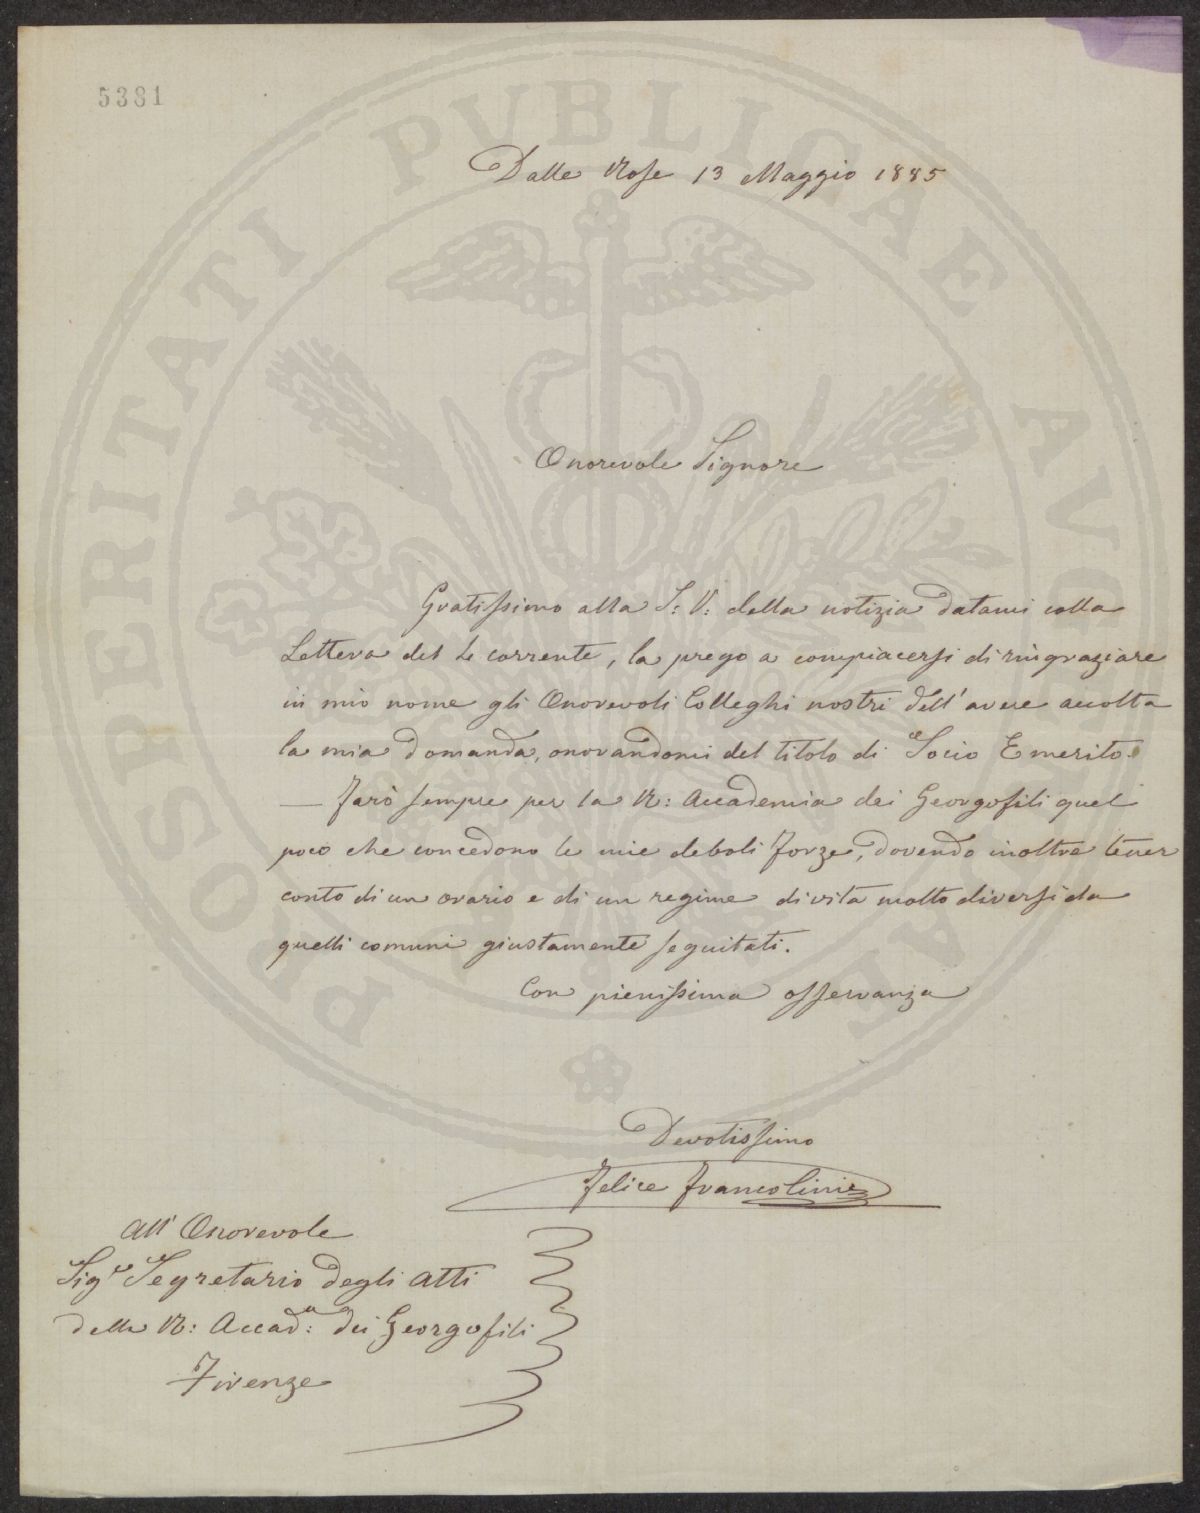 5381
Dalle Rose 13 Maggio 1885
Onorevole Signore
Gratissimo alla S: V: della notizia datami colla
Lettera del 4 corrente, la prego a compiacersi di ringraziare
in mio nome gli Onorevoli Colleghi nostri dell' avere accolta
la mia domanda, onorandomi del titolo di Socio Emerito.
— Farò sempre per la R: Accademia dei Georgofili quel
poco che concedono le mie deboli forze, dovendo inoltre tener
conto di un orario e di un regime di vita molto diversi da
quelli comuni giustamente seguitati.
Con pienissima osservanza
Devotissimo
Felice Francolini
All' Onorevole
Sigr Segretario degli Atti
della R: Accada: dei Georgofili
Firenze
PROSPERITATI PVBLICAE AVGENDAE